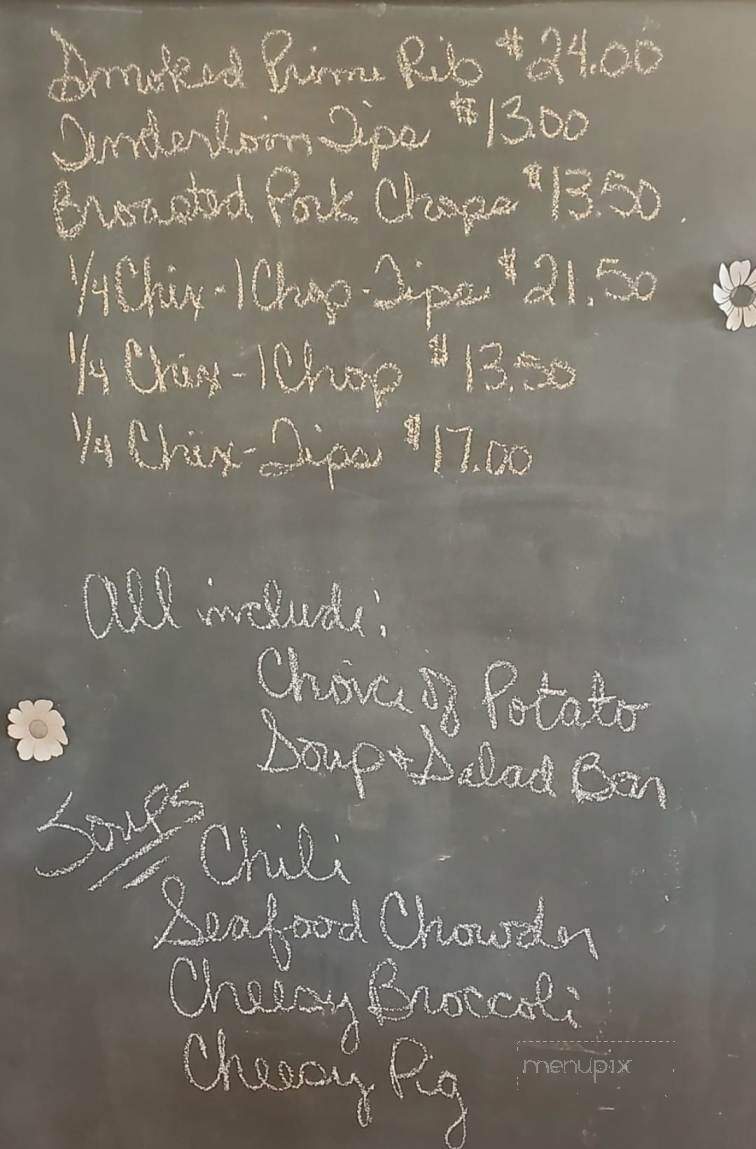 Smoked Prime Rib $24.00
Tenderloin Tips $13.00
Broasted Pork Chops $13.50
1/4 Chix-1 Chop-Tips $21.50
1/4 Chix-1 Chop $13.50
1/4 Chix-Tips $17.00
All include:
Choice of Potato
Soup & Salad Bar
Soups
Chili
Seafood Chowder
Cheesy Broccoli
Cheesy Pig
menupix